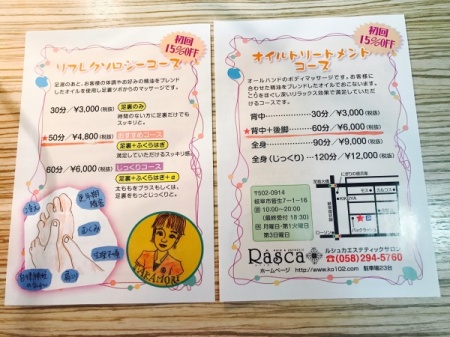 初回
15%OFF
リフレクソロジーコース
足湯のあと、お客様の体調やお好みの精油をブレンド
したオイルを使用し足裏ツボからのマッサージです。
30分/¥3,000(税抜) 足裏のみ
時間のない方に足裏だけでも
スッキリと。
★50分/¥4,800(税抜) おすすめコース
足裏+ふくらはぎ
満足していただけるスッキリ感。
60分/¥6,000(税抜) じっくりコース
足裏+ふくらはぎ+α
太ももをプラスもしくは、
足裏をもっとじっくりと。
冷え
更年期
障害
むくみ
生理不順
自律神経
肩こり
TAKAMORI
初回
15%OFF
オイルトリートメント
コース
オールハンドのボディマッサージです。お客様に
合わせた精油をブレンドしたオイルでおこないます。
こころをほぐし深いリラックス効果で満足していただ
けるコースです。
背中……………30分/¥3,000(税抜)
★背中+後脚……60分/¥6,000(税抜)
全身……………90分/¥9,000(税抜)
全身(じっくり)…120分/¥12,000(税抜)
〒502-0914
岐阜市菅生7-1-18
営 10:00~20:00
(最終受付 18:30)
休 月曜日・第1火曜日
第3日曜日
Rasca
ルシュカエステティックサロン
☎(058)294-5760
ホームページ http://www.ko102.com 駐車場23台